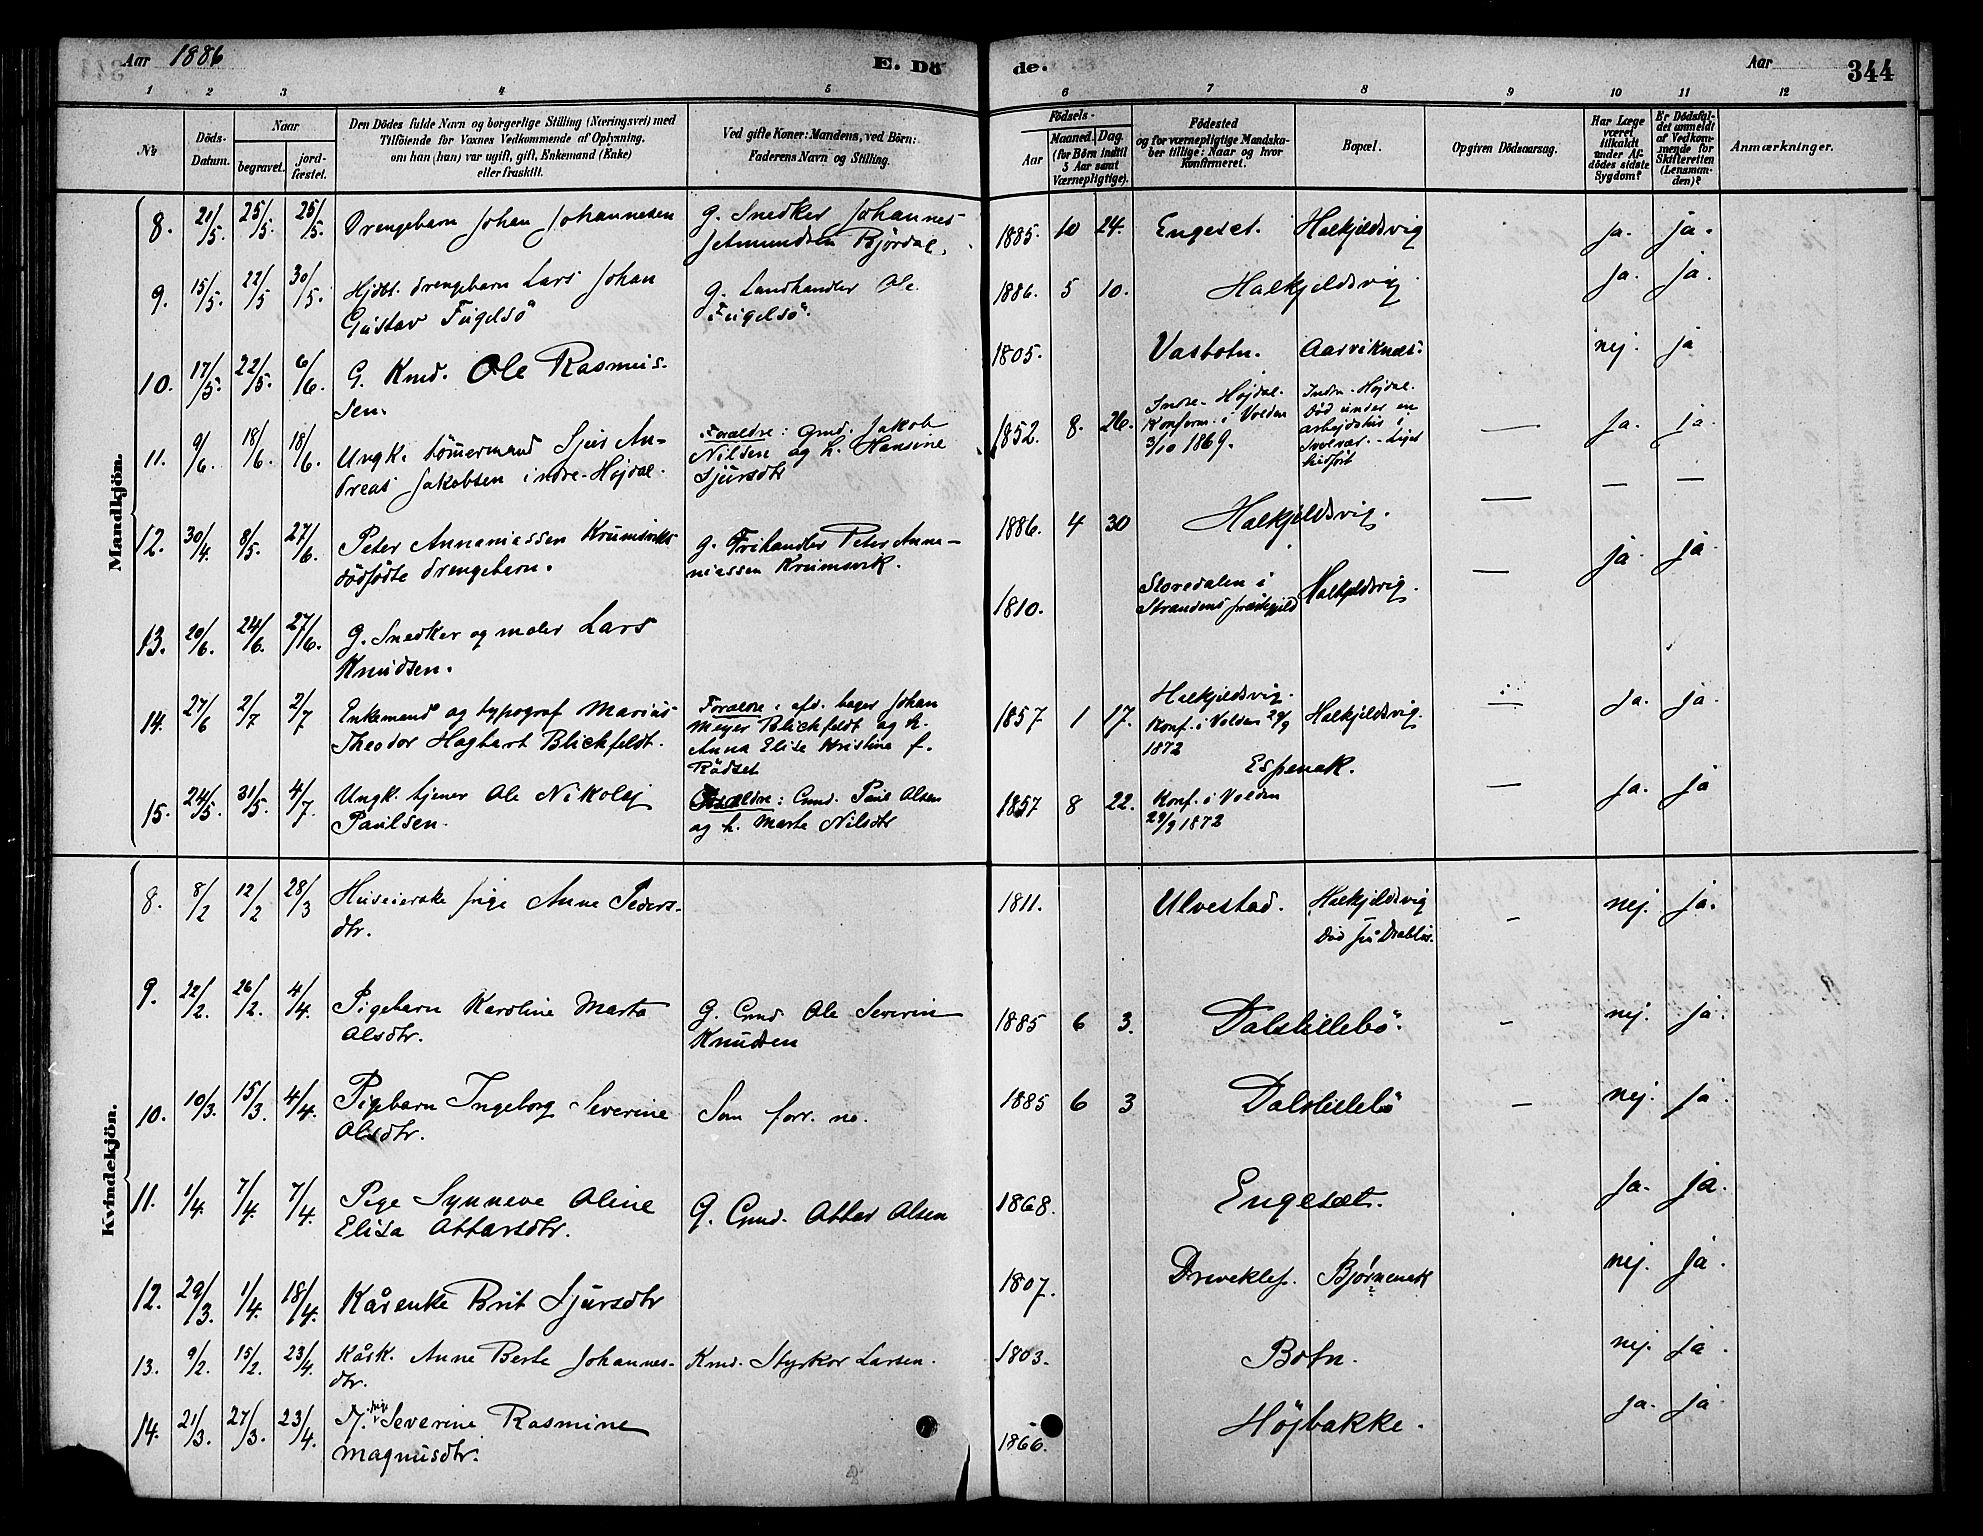 Aar 1886 E. Dö de. Aar 344
1 2 3 4 5 6 7 8 9 10 11 12
№ Döds-Datum. Naar begravet. jord-fæstet. Den Dödes fulde Navn og borgerlige Stilling (Næringsvei) med Tilföiende for Voxnes Vedkommende af Oplysning, om han (hun) var ugift, gift, Enkemand (Enke) eller fraskilt. Ved gifte Koner: Mandens, ved Börn: Faderens Navn og Stilling. Födsels- Aar Maaned. Dag. (for Börn indtil 5 Aar samt Værnepligtige). Födested og for værnepligtige Mandskaber tillige: Naar og hvor konfirmeret. Bopæl. Opgiven Dödsaarsag. Har Læge været tilkaldt under Afdödes sidste Sygdom? Er Dödsfaldet anmeldt af Vedkommende for Skifteretten (Lensmanden)? Anmærkninger.
Mandkjön.
8. 21/5. 25/5. 25/5. Drengebarn Johan Johannesen g. Snedker Johannes 1885. 10 24. Engeset. Halkjeldsvig ja. ja.
Jetmundsen Björdal.
9. 15/5. 22/5 30/5. Hjdbt. drengebarn Lars Johan g. Landhandler Ole 1886. 5 10. Halkjeldsvig ja. ja.
Gustav Fugelsö Fugelsö.
10. 17/5. 22/5. 6/6. G. Kmd. Ole Rasmus- 1805. Vasbotn. Aarviknæs. nej. ja
sen.
11. 9/6. 18/6. 18/6. Ungk. tömermand Sjur An- Forældre: Gmd. Jakob 1852. 8. 26. Indre-Højdal. Indre-Højdal. — ja. ja.
dreas Jakobsen indre-Højdal. Nilsen og h. Hansine Konferm. i Volden Död under en
Sjursdtr 3/10 1869. arbejdstur i
Svolvær. - Liget
hidført
12. 30/4. 8/5. 27/6. Peter Annaniassen Krumsviks g. Frihandler Peter Anna- 1886. 4 30 Halkjeldsvig. — — —
dödfödte drengebarn. niassen Krumsvik.
13. 20/6. 24/6. 27/6. g. Snedker og maler Lars 1810. Storedalen i Halkjeldsvig. — ja. ja.
Knudsen. Strandens præstegjeld
14. 27/6 2/7 2/7 Enkemand og typograf Marius Forældre: afd. bager Johan 1857 1 17. Halkjeldsvig. Halkjeldsvig. ja. ja.
Theodor Hagbart Blickfeldt. Meyer Blickfeldt og h. Konf. i Volden 29/9
Anna Elise Kristine f. 1872
Rödset
15. 24/5. 31/5. 4/7. Ungk. tjener Ole Nikolaj Forældre: Gmd. Paul Olsen 1857 8 22. Espenak. — ja. ja
Paulsen. og h. Marte Nilsdtr Konf. i Volden
29/9 1872
Kvindekjön.
8. 8/2 12/2 28/3 Huseierske pige Anne Peders- 1811. Ulvestad. Halkjeldsvig - nej. ja.
dtr. Död på Drablös.
9. 22/2. 26/2. 4/4. Pigebarn Karoline Marta G. Gmd Ole Severin 1885 6 3. Dalslillebö. - nej. ja.
Olsdtr. Knudsen
10. 10/3. 15/3. 4/4. Pigebarn Ingeborg Severine Som forr. no. 1885 6 3 Dalslillebö - nej. ja
Olsdtr.
11. 1/4. 7/4. 7/4. Pige Synneve Oline G. Gmd. Ottar Olsen 1868. Engesæt. ja. ja.
Elisa Ottarsdtr.
12. 29/3. 1/4. 18/4. Kårenke Brit Sjursdtr 1807. Driveklep. Bjørnenak nej. ja.
13. 9/2. 15/2. 23/4. Kårk. Anne Berte Johannes- Kmd. Styrkor Larsen. 1803. Botn. nej. ja.
dtr.
14. 21/3. 27/3. 23/4. pige Severine Rasmine 1866. Højbakke. ja. ja
Magnusdtr.